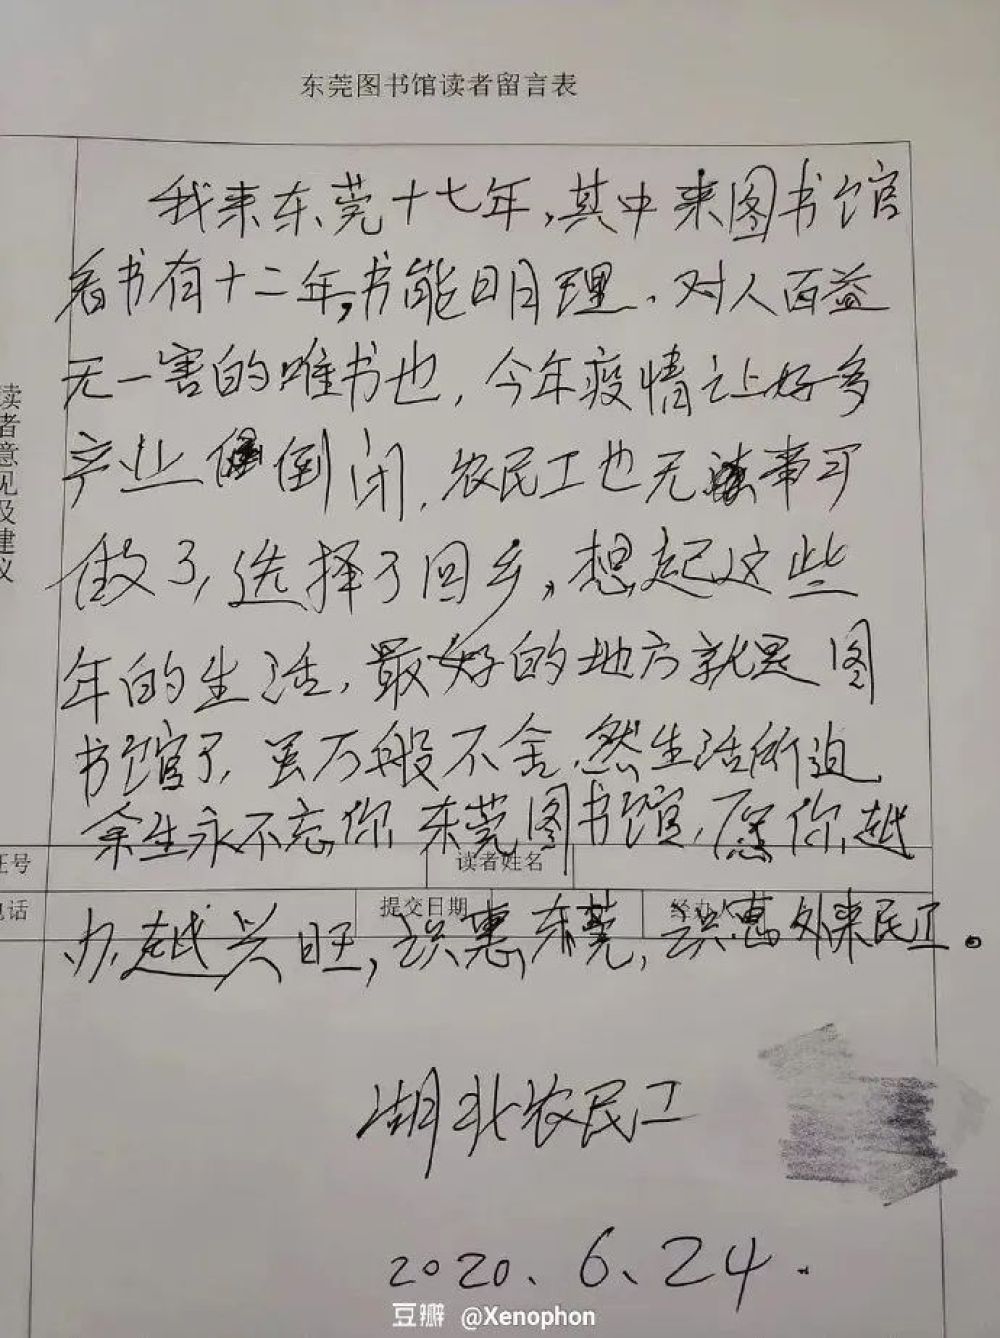 东莞图书馆读者留言表
我来东莞十七年,其中来图书馆
看书有十二年,书能明理、对人百益
无一害的唯书也,今年疫情让好多
产业倒闭,农民工也无事可
做了,选择了回乡,想起这些
年的生活,最好的地方就是图
书馆了,虽万般不舍,然生活所迫
余生永不忘你,东莞图书馆,愿你越
办越兴旺,识惠东莞,识惠外来民工。
湖北农民工
2020.6.24.
读者意见及建议
证号
读者姓名
电话
提交日期
经办人
豆瓣 @Xenophon